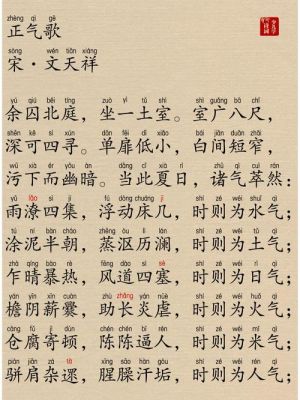 zhèng qì gē
正气歌
sòng wén tiān xiáng
宋·文天祥
yú qiú běi tíng zuò yì tǔ shì shì guǎng bā chǐ
余囚北庭，坐一土室。室广八尺，
shēn kě sì xún dān fēi dī xiǎo bái jiān duǎn zhǎi
深可四寻。单扉低小，白间短窄，
wū xià ér yōu àn dāng cǐ xià rì zhū qì cuì rán
污下而幽暗。当此夏日，诸气萃然：
yǔ lǎo sì jí fú dòng chuáng jī shí zé wéi shuǐ qì
雨潦四集，浮动床几，时则为水气；
tú ní bàn zhāo zhēng ōu lì lán shí zé wéi tǔ qì
涂泥半朝，蒸沤历澜，时则为土气；
zhà qíng bào rè fēng dào sì sè shí zé wéi rì qì
乍晴暴热，风道四塞，时则为日气；
yán yīn xīn cuàn zhù zhǎng yán nüè shí zé wéi huǒ qì
檐阴薪爨，助长炎虐，时则为火气；
cāng fǔ jì dùn chén chén bī rén shí zé wéi mǐ qì
仓腐寄顿，陈陈逼人，时则为米气；
pián jiān zá tà xīng sāo hàn gòu shí zé wéi rén qì
骈肩杂遝，腥臊汗垢，时则为人气；